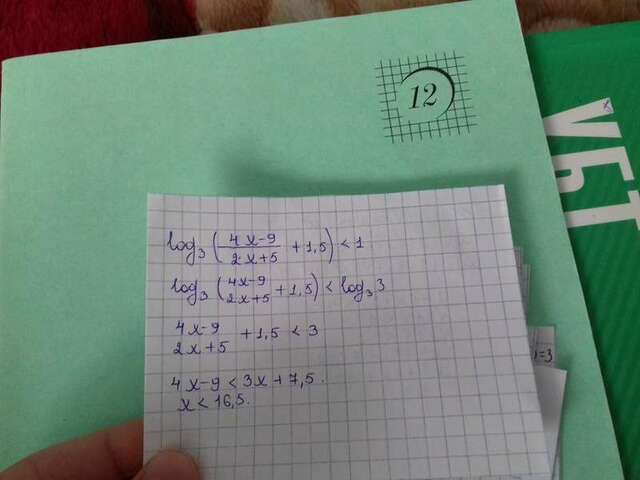 log₃ (4x-9/2x+5 + 1,5) < 1
log₃ (4x-9/2x+5 + 1,5) < log₃ 3
4x-9/2x+5 + 1,5 < 3
4x-9 < 3x+7,5.
x < 16,5.
12
)=3
ҰБТ